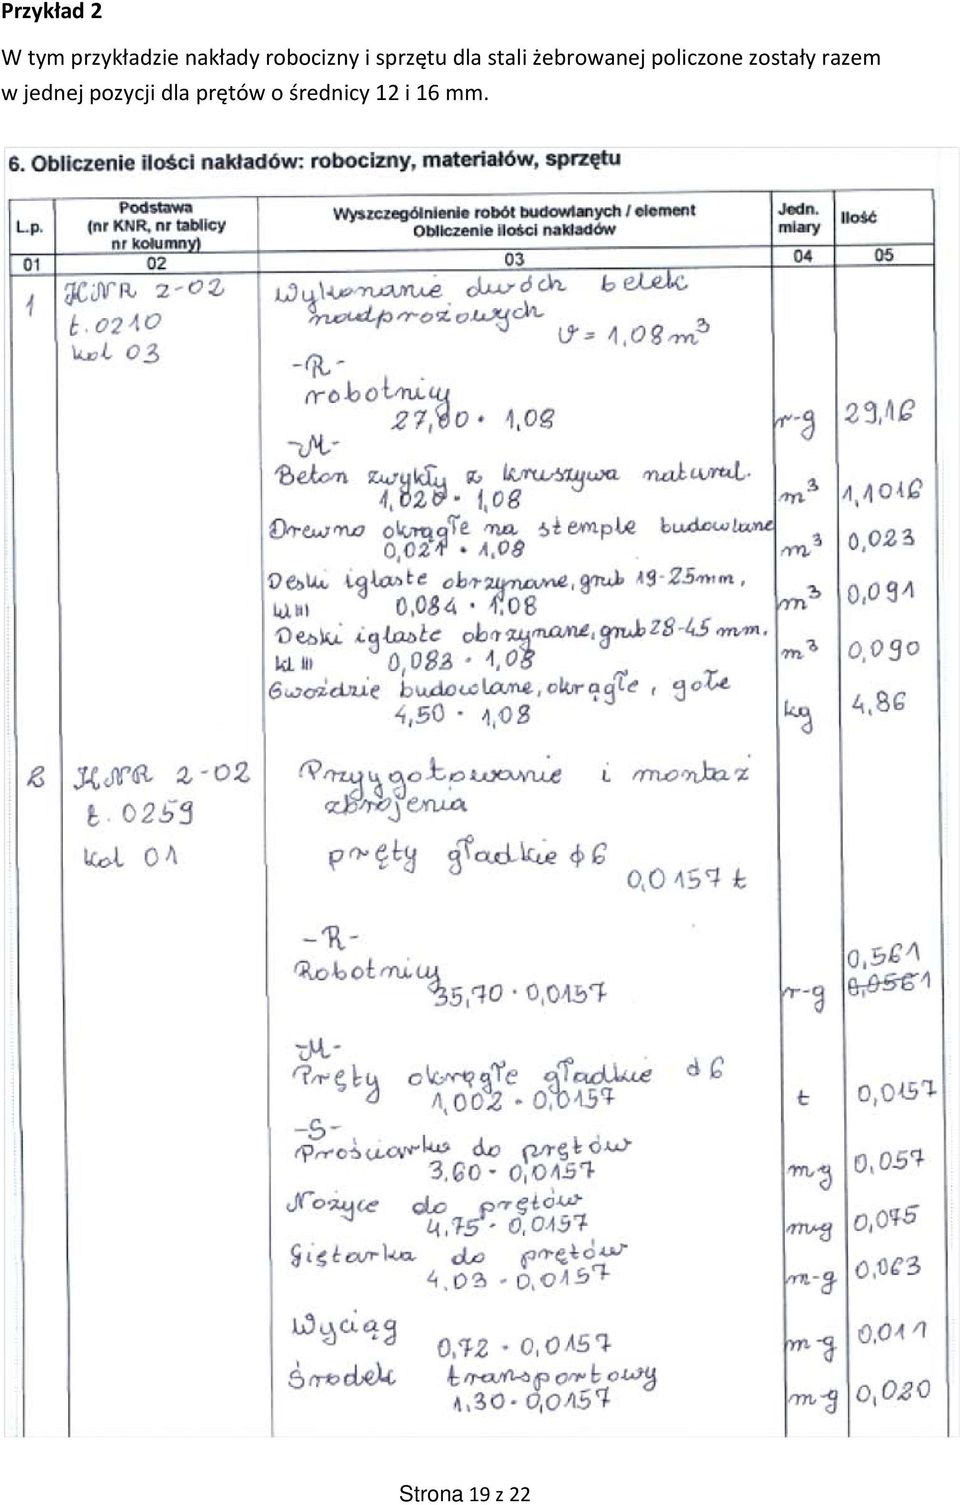 Przykład 2
W tym przykładzie nakłady robocizny i sprzętu dla stali żebrowanej policzone zostały razem
w jednej pozycji dla prętów o średnicy 12 i 16 mm.
6. Obliczenie ilości nakładów: robocizny, materiałów, sprzętu
L.p. Podstawa (nr KNR, nr tablicy nr kolumny) Wyszczególnienie robót budowlanych / element Obliczenie ilości nakładów Jedn. miary Ilość
01 02 03 04 05
1 KNR 2-02 Wykonanie dwóch belek
t.0210 nadprożowych
kol 03 V = 1,08 m³
-R-
robotnicy
27,00 · 1,08 r-g 29,16
-M-
Beton zwykły z kruszywa natural.
1,020 · 1,08 m³ 1,1016
Drewno okrągłe na stemple budowlane
0,021 · 1,08 m³ 0,023
Deski iglaste obrzynane, grub 19-25mm,
kl III 0,084 · 1,08 m³ 0,091
Deski iglaste obrzynane, grub 28-45 mm.
kl III 0,083 · 1,08 m³ 0,090
Gwoździe budowlane, okrągłe, gołe
4,50 · 1,08 kg 4,86
2 KNR 2-02 Przygotowanie i montaż
t.0259 zbrojenia
kol 01 pręty gładkie ϕ 6
0,0157 t
-R-
Robotnicy 0,561
35,70 · 0,0157 r-g 0,0561
-M-
Pręty okręgłe gładkie d 6
1,002 · 0,0157 t 0,0157
-S-
Prościarka do prętów
3,60 · 0,0157 m-g 0,057
Nożyce do prętów
4,75 · 0,0157 m-g 0,075
Giętarka do prętów
4,03 · 0,0157 m-g 0,063
Wyciąg
0,72 · 0,0157 m-g 0,011
Środek transportowy
1,30 · 0,0157 m-g 0,020
Strona 19 z 22